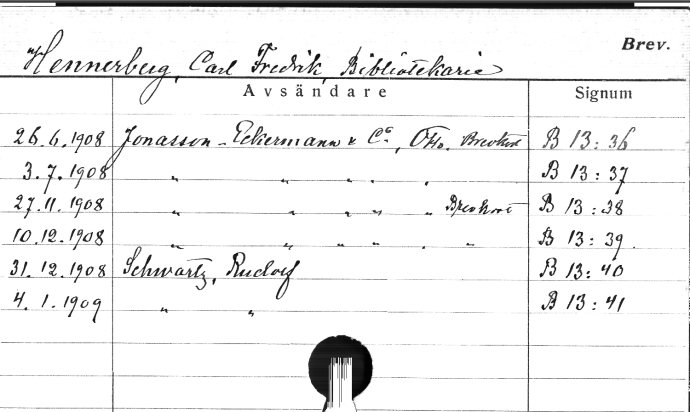 Brev.
Hennerberg, Carl Fredrik, Bibliotekarie
Avsändare Signum
26.6.1908 Jonasson-Eckermann & Co., Otto. Brevkort B 13:36
3.7.1908 " " " " . B 13:37
27.11.1908 " " " " " Brevkort B 13:38
10.12.1908 " " " " . " B 13:39.
31.12.1908 Schwartz, Rudolf B 13:40
4.1.1909 " " B 13:41